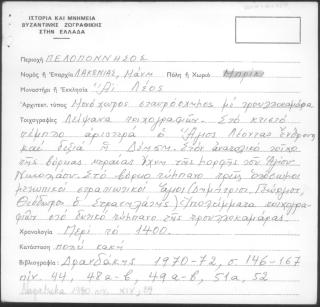 ΙΣΤΟΡΙΑ ΚΑΙ ΜΝΗΜΕΙΑ
ΒΥΖΑΝΤΙΝΗΣ ΖΩΓΡΑΦΙΚΗΣ
ΣΤΗΝ ΕΛΛΑΔΑ
Περιοχή ΠΕΛΟΠΟΝΝΗΣΟΣ
Νομός ή Επαρχία ΛΑΚΩΝΙΑΣ, Μάνη Πόλη ή Χωριό Μπρίκι
Μοναστήρι ή Εκκλησία Ἅι Λέος
Αρχιτεκτ. τύπος Μονόχωρος σταυρόσχημος με τρουλλοκαμάρα
Τοιχογραφίες Λείψανα τοιχογραφιών. Στο κτιστό
τέμπλο αριστερά ο Άγιος Λέοντας ένθρονος
και δεξιά η Δέηση. Στον ανατολικό τοίχο
της βόρειας κεραίας ίχνη της μορφής του Αγίου
Νικολάου. Στο βόρειο τύμπανο τρεις ολόσωμοι
μετωπικοί στρατιωτικοί Άγιοι (Δημήτριος, Γεώργιος,
Θεόδωρος ο Στρατηλάτης). Υπολείμματα τοιχογρα-
φιών στο δυτικό τύμπανο της τρουλλοκαμάρας.
Χρονολογία Περί το 1400.
Κατάσταση πολύ κακή
Βιβλιογραφία: Δρανδάκης 1970-72, σ 146-167
πίν. 44, 48α-β, 49α-β, 51α, 52